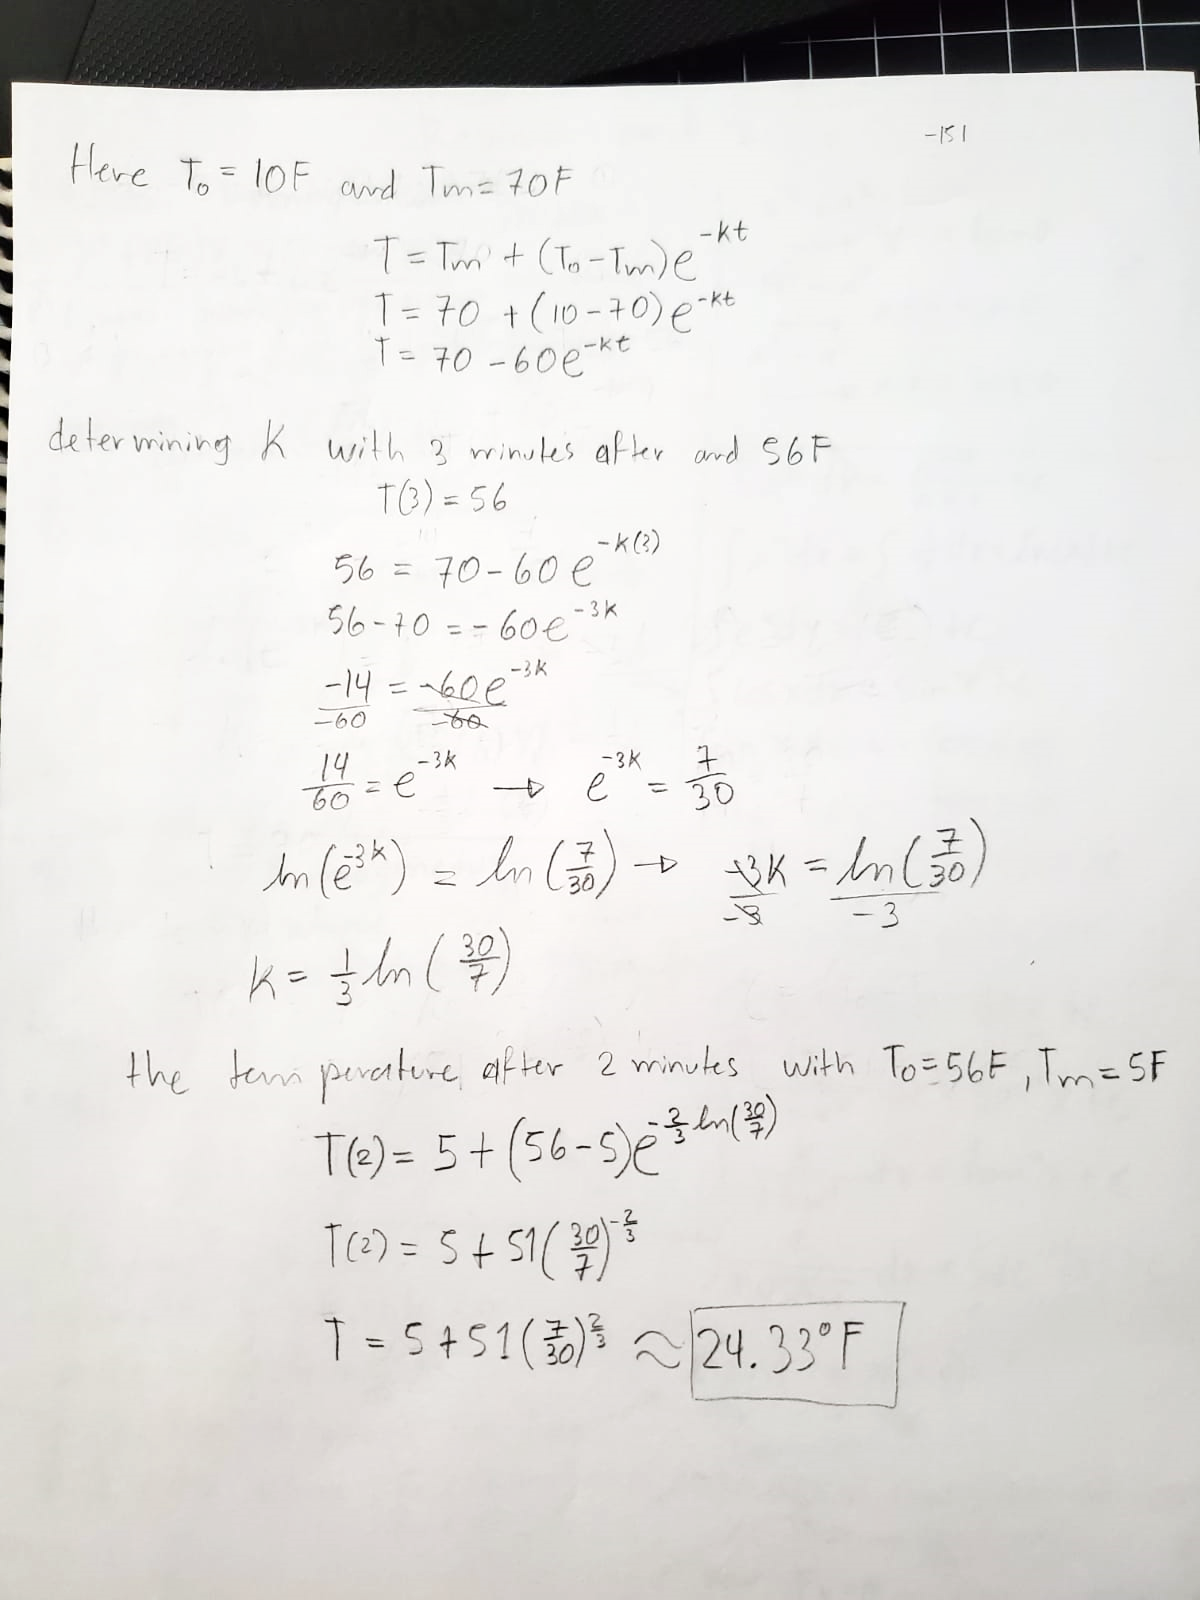 -151
Here T₀ = 10F and Tm = 70F
T = Tm + (T₀ - Tm)e^-kt
T = 70 + (10 - 70)e^-kt
T = 70 - 60e^-kt
determining K with 3 minutes after and 56F
T(3) = 56
56 = 70 - 60e^-k(3)
56 - 70 = -60e^-3k
-14/-60 = -60e^-3k/-60
14/60 = e^-3k → e^-3k = 7/30
ln(e^-3k) = ln(7/30) → -3k/-3 = ln(7/30)/-3
k = 1/3 ln(30/7)
the temperature, after 2 minutes with T₀=56F, Tm=5F
T(2) = 5 + (56-5)e^-2/3 ln(30/7)
T(2) = 5 + 51(30/7)^-2/3
T = 5 + 51(7/30)^2/3 ≈ 24.33°F